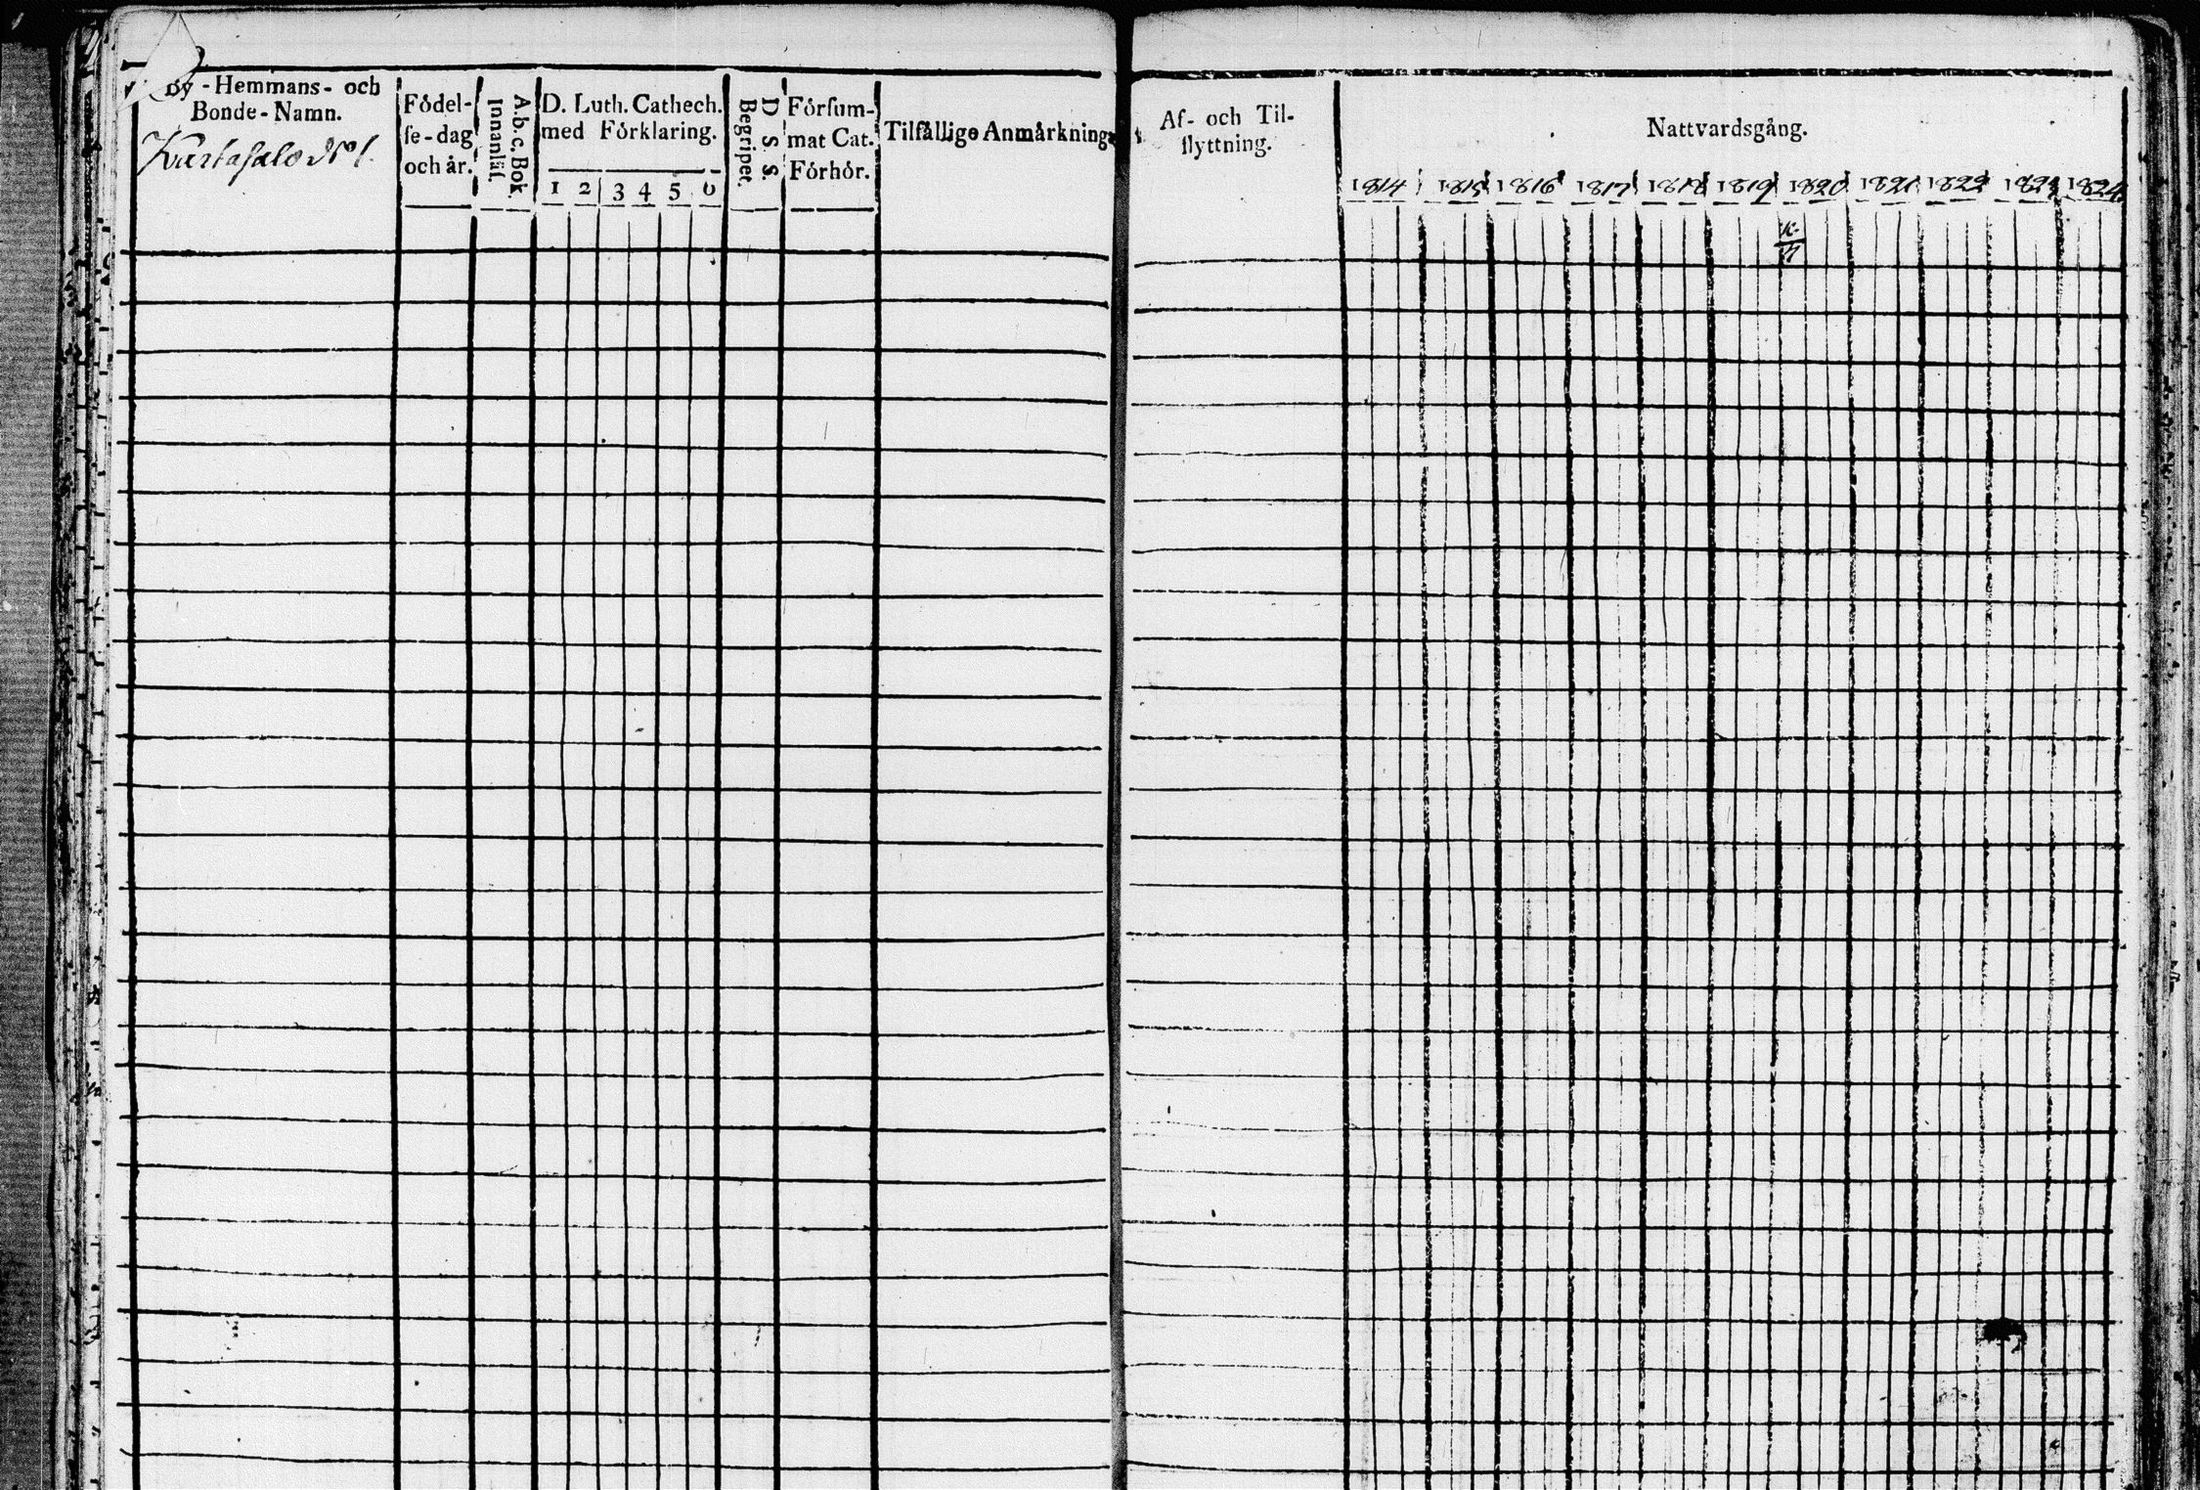 By-Hemmans- och
Bonde-Namn.
Kartasalo No 1.
Födel-
ſe-dag
och år.
A.b.c.Bok.
Innanläſ.
D. Luth. Cathech.
med Förklaring.
1 2 3 4 5 6
D. S. S.
Begripet.
Förſum-
mat Cat.
Förhör.
Tilfällige Anmärkning.
Af- och Til-
flyttning.
Nattvardsgång.
1814 1815 1816 1817 1818 1819 1820 1821 1822 1823 1824